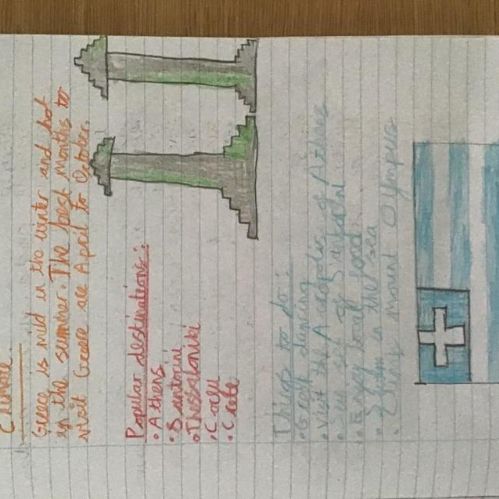 Climate
Greece is mild in the winter and hot
in the summer. The best months to
visit Greece are April to October.
Popular destinations:
• Athens
• Santorini
• Thessaloniki
• Corfu
• Crete
Things to do:
• Greek dancing
• Visit the Acropolis of Athens
• See sunset of Santorini
• Enjoy local food
• Swim in the sea
• Climb mount Olympus